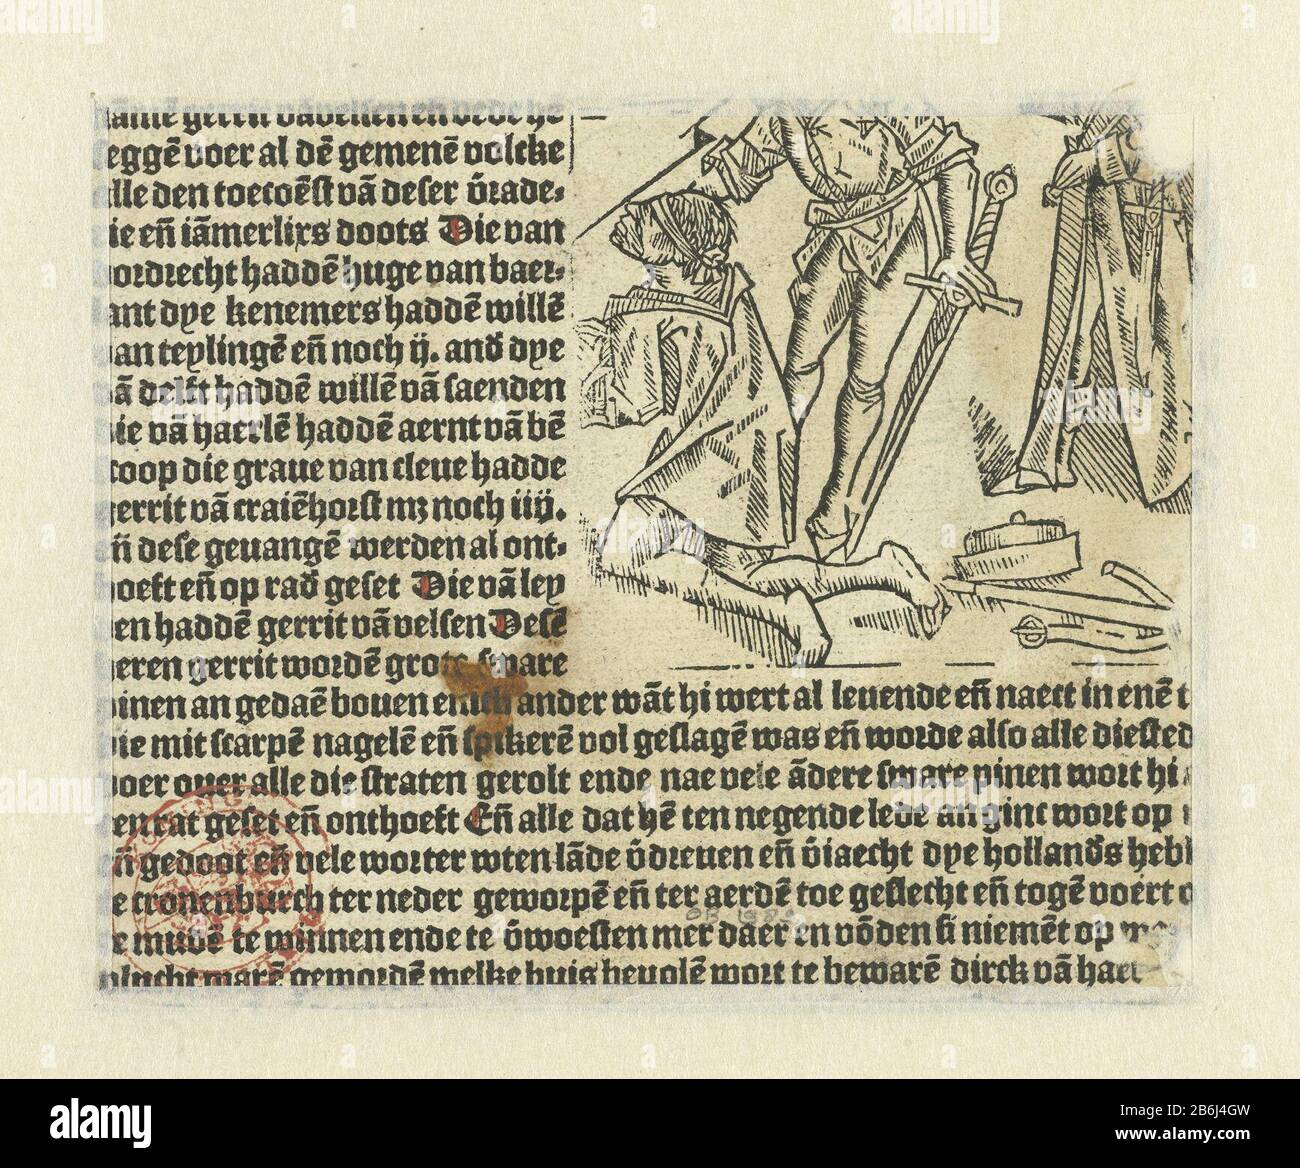 gerrit vā velsen eñ dede he
eggē voer al dē gemenē volcke
alle den toecoēst vā deser v̄rade⸗
ie eñ iāmerlixs doots Die van
dordrecht haddē huge van baer⸗
lant dye kenemers haddē willē
van teylingē eñ noch ij. and̄ dye
vā delft haddē willē vā saenden
die vā haerlē haddē aernt vā bē
coop die graue van cleue hadde
gerrit vā craiēhorst mz noch iiij.
eñ dese geuangē werden al ont⸗
hoeft eñ op rad̄ geset Die vā ley
en haddē gerrit vā velsen Desē
heren gerrit wordē grote sware
pinen an gedaē bouen ander wāt hi wert al leuende eñ naect in enē t
die mit scarpē nagelē eñ spikerē vol geslagē was eñ worde also alle die sted
doer ouer alle die straten gerolt ende nae vele ādere sware pinen wort hi
en rat geset eñ onthoeft Eñ alle dat hē ten negende lede an ginc wort op
eñ gedoot eñ vele worter wten lāde v̄dreuen eñ v̄iaecht dye hollands̄ heb
e cronenburch ter neder geworpē eñ ter aerdē toe geslecht eñ togē voert o
e mudē te winnen ende te v̄woesten mer daer en vōden si niemēt op
vlucht warē gewordē welke huis beuolē wort te bewarē dirck vā haer
alamy
Image ID: 2B6J4GW
www.alamy.com